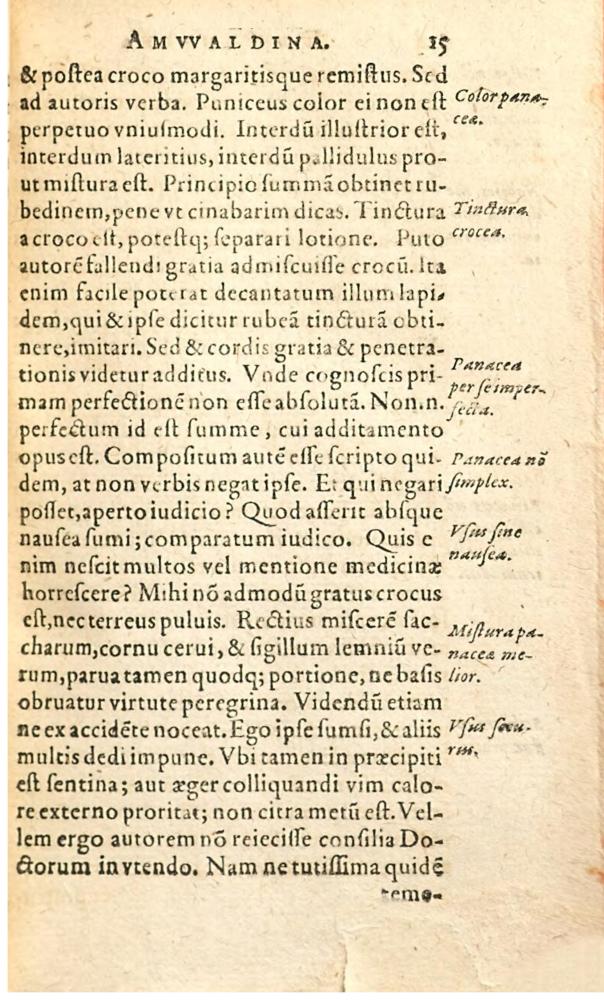 AMVVALDINA. 15
& poſtea croco margaritisque remiſtus. Sed
ad autoris verba. Puniceus color ei non eſt
Color pana-
perpetuo vniuſmodi. Interdū illuſtrior eſt,
ceæ.
interdum lateritius, interdū pallidulus pro-
ut miſtura eſt. Principio ſummā obtinet ru-
bedinem, pene vt cinabarim dicas. Tinctura
Tinctura
a croco eſt, poteſtq; ſeparari lotione. Puto
crocea.
autorē fallendi gratia admiſcuiſſe crocū. Ita
enim facile poterat decantatum illum lapi-
dem, qui & ipſe dicitur rubeā tincturā obti-
nere, imitari. Sed & cordis gratia & penetra-
tionis videtur additus. Vnde cognoſcis pri-
Panacea
mam perfectionē non eſſe abſolutā. Non.n.
per ſe imper-
fecta.
perfectum id eſt ſumme, cui additamento
opus eſt. Compoſitum autē eſſe ſcripto qui-
Panacea nō
dem, at non verbis negat ipſe. Et qui negari
ſimplex.
poſſet, aperto iudicio? Quod aſſerit abſque
nauſea ſumi; comparatum iudico. Quis e
Vſus ſine
nim neſcit multos vel mentione medicinæ
nauſea.
horreſcere? Mihi nō admodū gratus crocus
eſt, nec terreus puluis. Rectius miſcerē ſac-
Miſtura pa-
charum, cornu cerui, & ſigillum lemniū ve-
naceæ me-
rum, parua tamen quodq; portione, ne baſis
lior.
obruatur virtute peregrina. Videndū etiam
ne ex accidēte noceat. Ego ipſe ſumſi, & aliis
Vſus ſecu-
multis dedi impune. Vbi tamen in præcipiti
rus.
eſt ſentina; aut æger colliquandi vim calo-
re externo proritat; non citra metū eſt. Vel-
lem ergo autorem nō reieciſſe conſilia Do-
ctorum in vtendo. Nam ne tutiſſima quidē
temo-